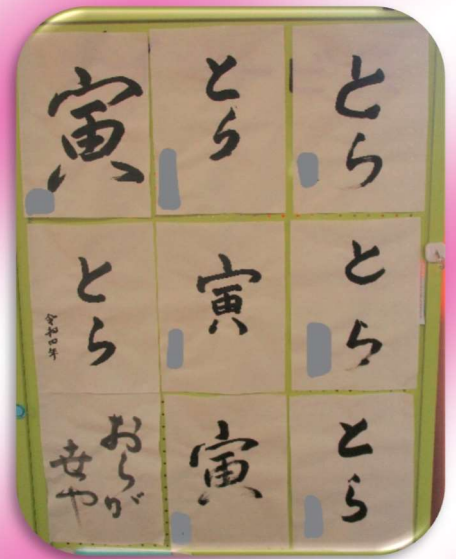 寅
とら
とら
とら
令和四年
寅
とら
おらが
寅
とら